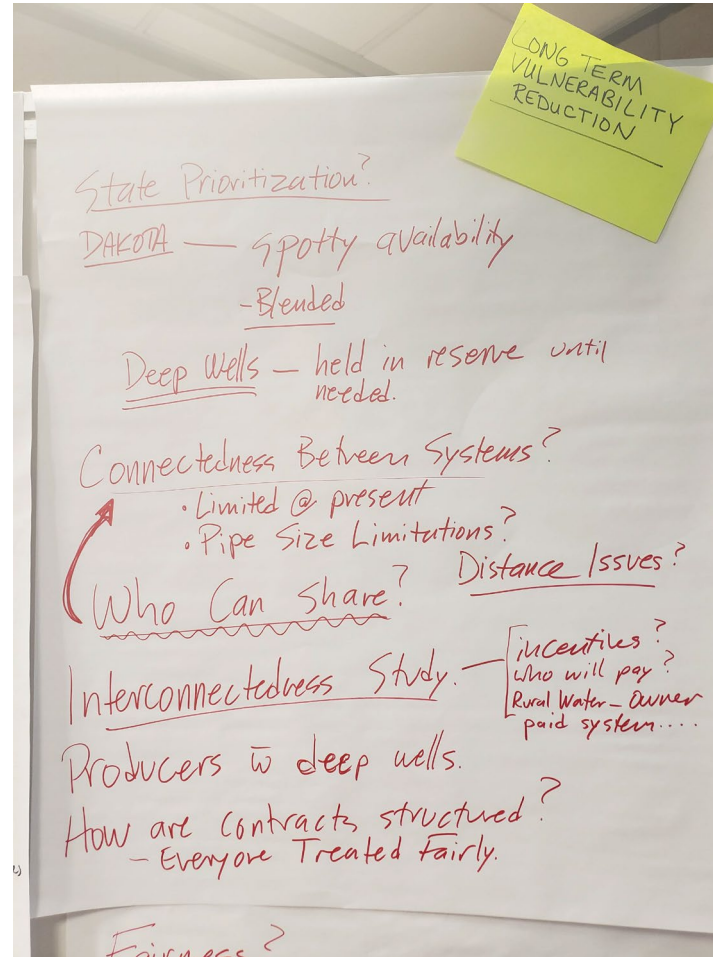 LONG TERM
VULNERABILITY
REDUCTION
State Prioritization?
DAKOTA — spotty availability
- Blended
Deep Wells — held in reserve until
needed.
Connectedness Between Systems?
• Limited @ present
• Pipe Size Limitations?
Distance Issues?
Who Can Share?
Interconnectedness Study. — incentives?
who will pay?
Rural Water - Owner
paid system....
Producers w̄ deep wells.
How are contracts structured?
- Everyone Treated Fairly.
Fairness?